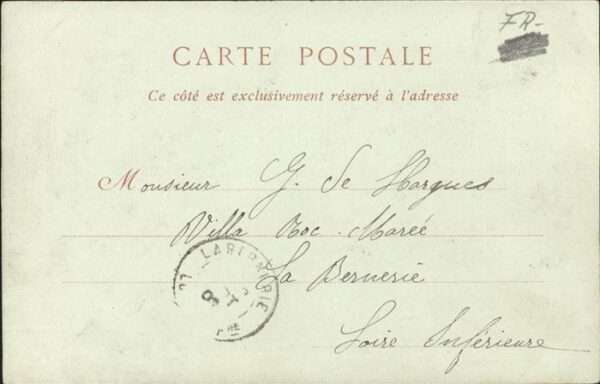 FR-
CARTE POSTALE
Ce côté est exclusivement réservé à l'adresse
Monsieur G. de Hargues
Villa Roc-Marée
La Bernerie
Loire Inférieure
LA BERNERIE